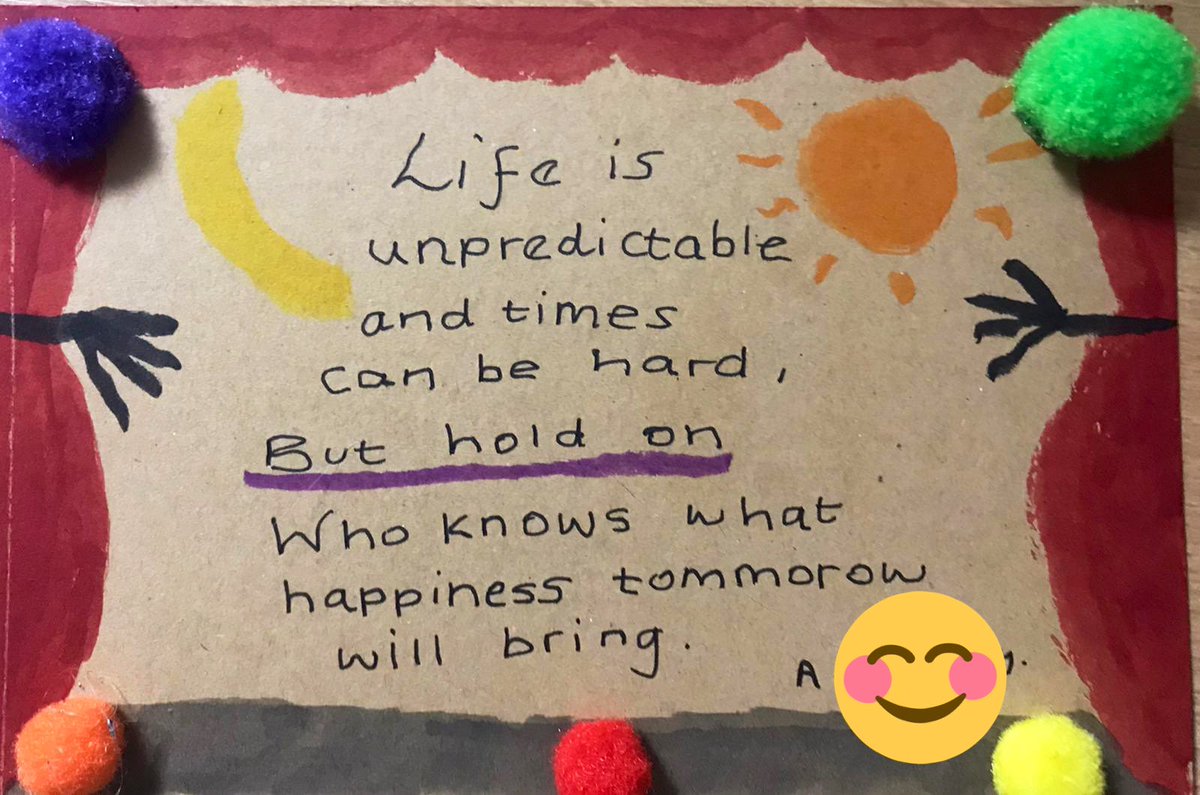 Life is
unpredictable
and times
can be hard,
But hold on
Who knows what
happiness tommorow
will bring.
A